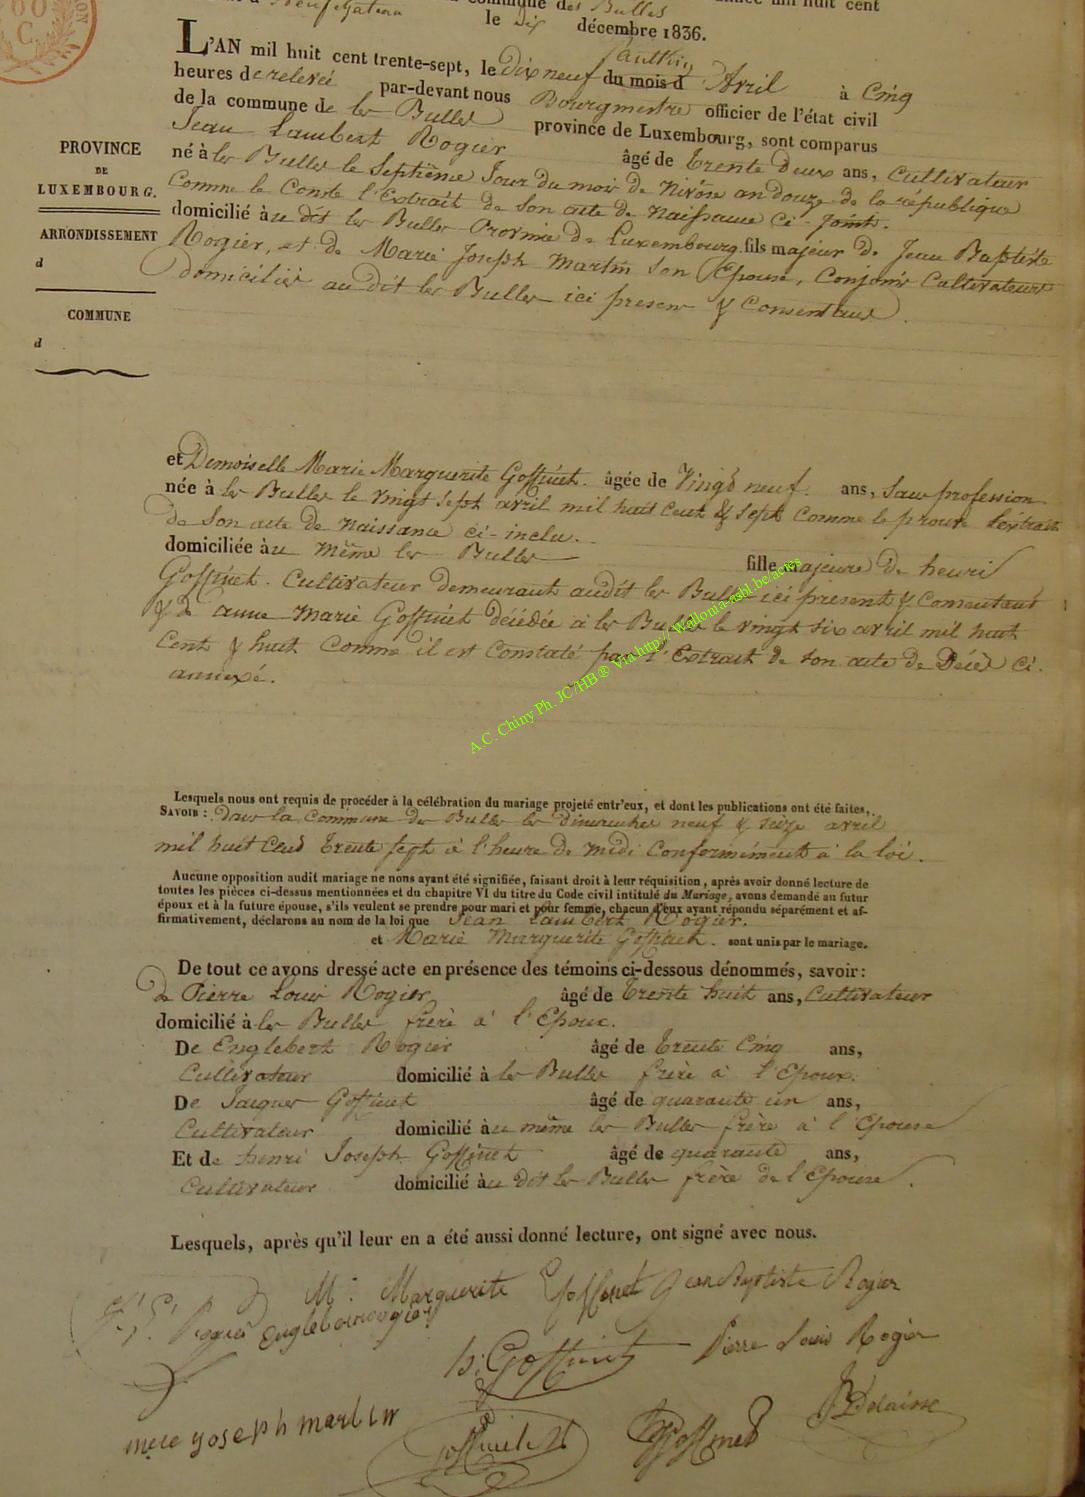 Neufchateau
commune des Bulles
mil huit cent
le Dix décembre 1836.
L'AN mil huit cent trente-sept, le dix neuf du mois d'Avril à Cinq
heures de relevée par-devant nous Bourgmestre officier de l'état civil
de la commune de les Bulles province de Luxembourg, sont comparus
Jean Lambert Rogier âgé de trente deux ans, Cultivateur
né à les Bulles le Septième Jour du mois de Nivôse an douze de la république
Comme le Conste l'Extrait de Son acte de Naissance Ci-Joint.
domicilié au dit les Bulles Province de Luxembourg fils majeur de Jean Baptiste
Rogier, et de Marie Joseph Martin Son Epouse, Conjoins Cultivateurs
domiciliés au dit les Bulles ici presens & Consentans.
PROVINCE
DE
LUXEMBOURG.
ARRONDISSEMENT
d
COMMUNE
d
et Demoiselle Marie Marguerite Goffinet. âgée de Vingt neuf. ans, Sans profession
née à les Bulles le vingt sept avril mil huit Cent & Sept Comme le prouve l'extrait
de Son acte de Naissance ci-inclu.
domiciliée au même les Bulles fille majeure de henri
Goffinet. Cultivateur demeurant audit les Bulles ici présent & Consentant
& de anne Marie Goffinet Décédée à les Bulles le vingt six avril mil huit
Cent & huit Comme il est Constaté par l'Extrait de son acte de Décès ci.
annexé.
A.C. Chiny Ph. JC/HB® Via http://Wallonia-asbl.be/actes
Lesquels nous ont requis de procéder à la célébration du mariage projeté entr'eux, et dont les publications ont été faites,
SAVOIR : Dans la Commune des Bulles les dimanches neuf & seize avril
mil huit Cent trente sept à l'heure de midi Conformément à la loi.
Aucune opposition audit mariage ne nons ayant été signifiée, faisant droit à leur réquisition, après avoir donné lecture de
toutes les pièces ci-dessus mentionnées et du chapitre VI du titre du Code civil intitulé du Mariage, avons demandé au futur
époux et à la future épouse, s'ils veulent se prendre pour mari et pour femme, chacun d'eux ayant répondu séparément et af-
firmativement, déclarons au nom de la loi que Jean Lambert Rogier.
et Marie Marguerite Goffinet. sont unis par le mariage.
De tout ce avons dressé acte en présence des témoins ci-dessous dénommés, savoir:
de Pierre Louis Rogier âgé de trente huit ans, Cultivateur
domicilié à les Bulles frère à l'Epoux.
De Englebert Rogier âgé de trente Cinq ans,
Cultivateur domicilié à les Bulles frère à l'Epoux.
De Jacques Goffinet âgé de quarante un ans,
Cultivateur domicilié au même les Bulles frère à l'Epouse
Et de henri Joseph Goffinet âgé de quarante ans,
Cultivateur domicilié au dit les Bulles frère de l'Epouse.
Lesquels, après qu'il leur en a été aussi donné lecture, ont signé avec nous.
M: Marguerite Goffinet Jean Baptiste Rogier
Rogier Englebert rogier
h: Goffinet Pierre Louis Rogier
marie yoseph martin Goffinet Goffinet